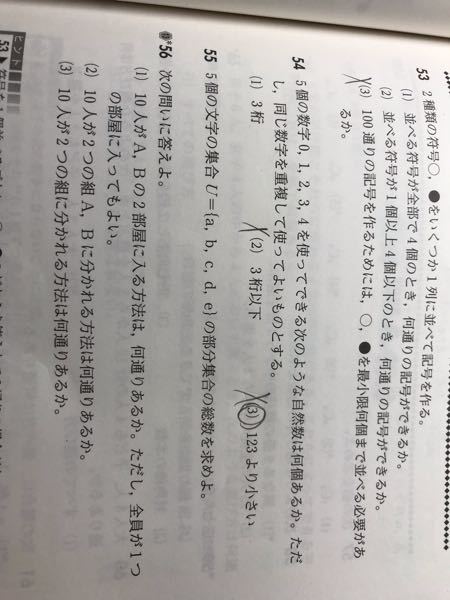 53 2種類の符号○, ●をいくつか1列に並べて記号を作る。
(1) 並べる符号が全部で4個のとき, 何通りの記号ができるか。
(2) 並べる符号が1個以上4個以下のとき, 何通りの記号ができるか。
(3) 100通りの記号を作るためには, ○, ●を最小限何個まで並べる必要があ
るか。
54 5個の数字0, 1, 2, 3, 4を使ってできる次のような自然数は何個あるか。ただ
し, 同じ数字を重複して使ってよいものとする。
(1) 3桁 (2) 3桁以下 (3) 123より小さい
55 5個の文字の集合 U={a, b, c, d, e} の部分集合の総数を求めよ。
*56 次の問いに答えよ。
(1) 10人がA, Bの2部屋に入る方法は, 何通りあるか。ただし, 全員が1つ
の部屋に入ってもよい。
(2) 10人が2つの組A, Bに分かれる方法は何通りあるか。
(3) 10人が2つの組に分かれる方法は何通りあるか。
ヒント
53